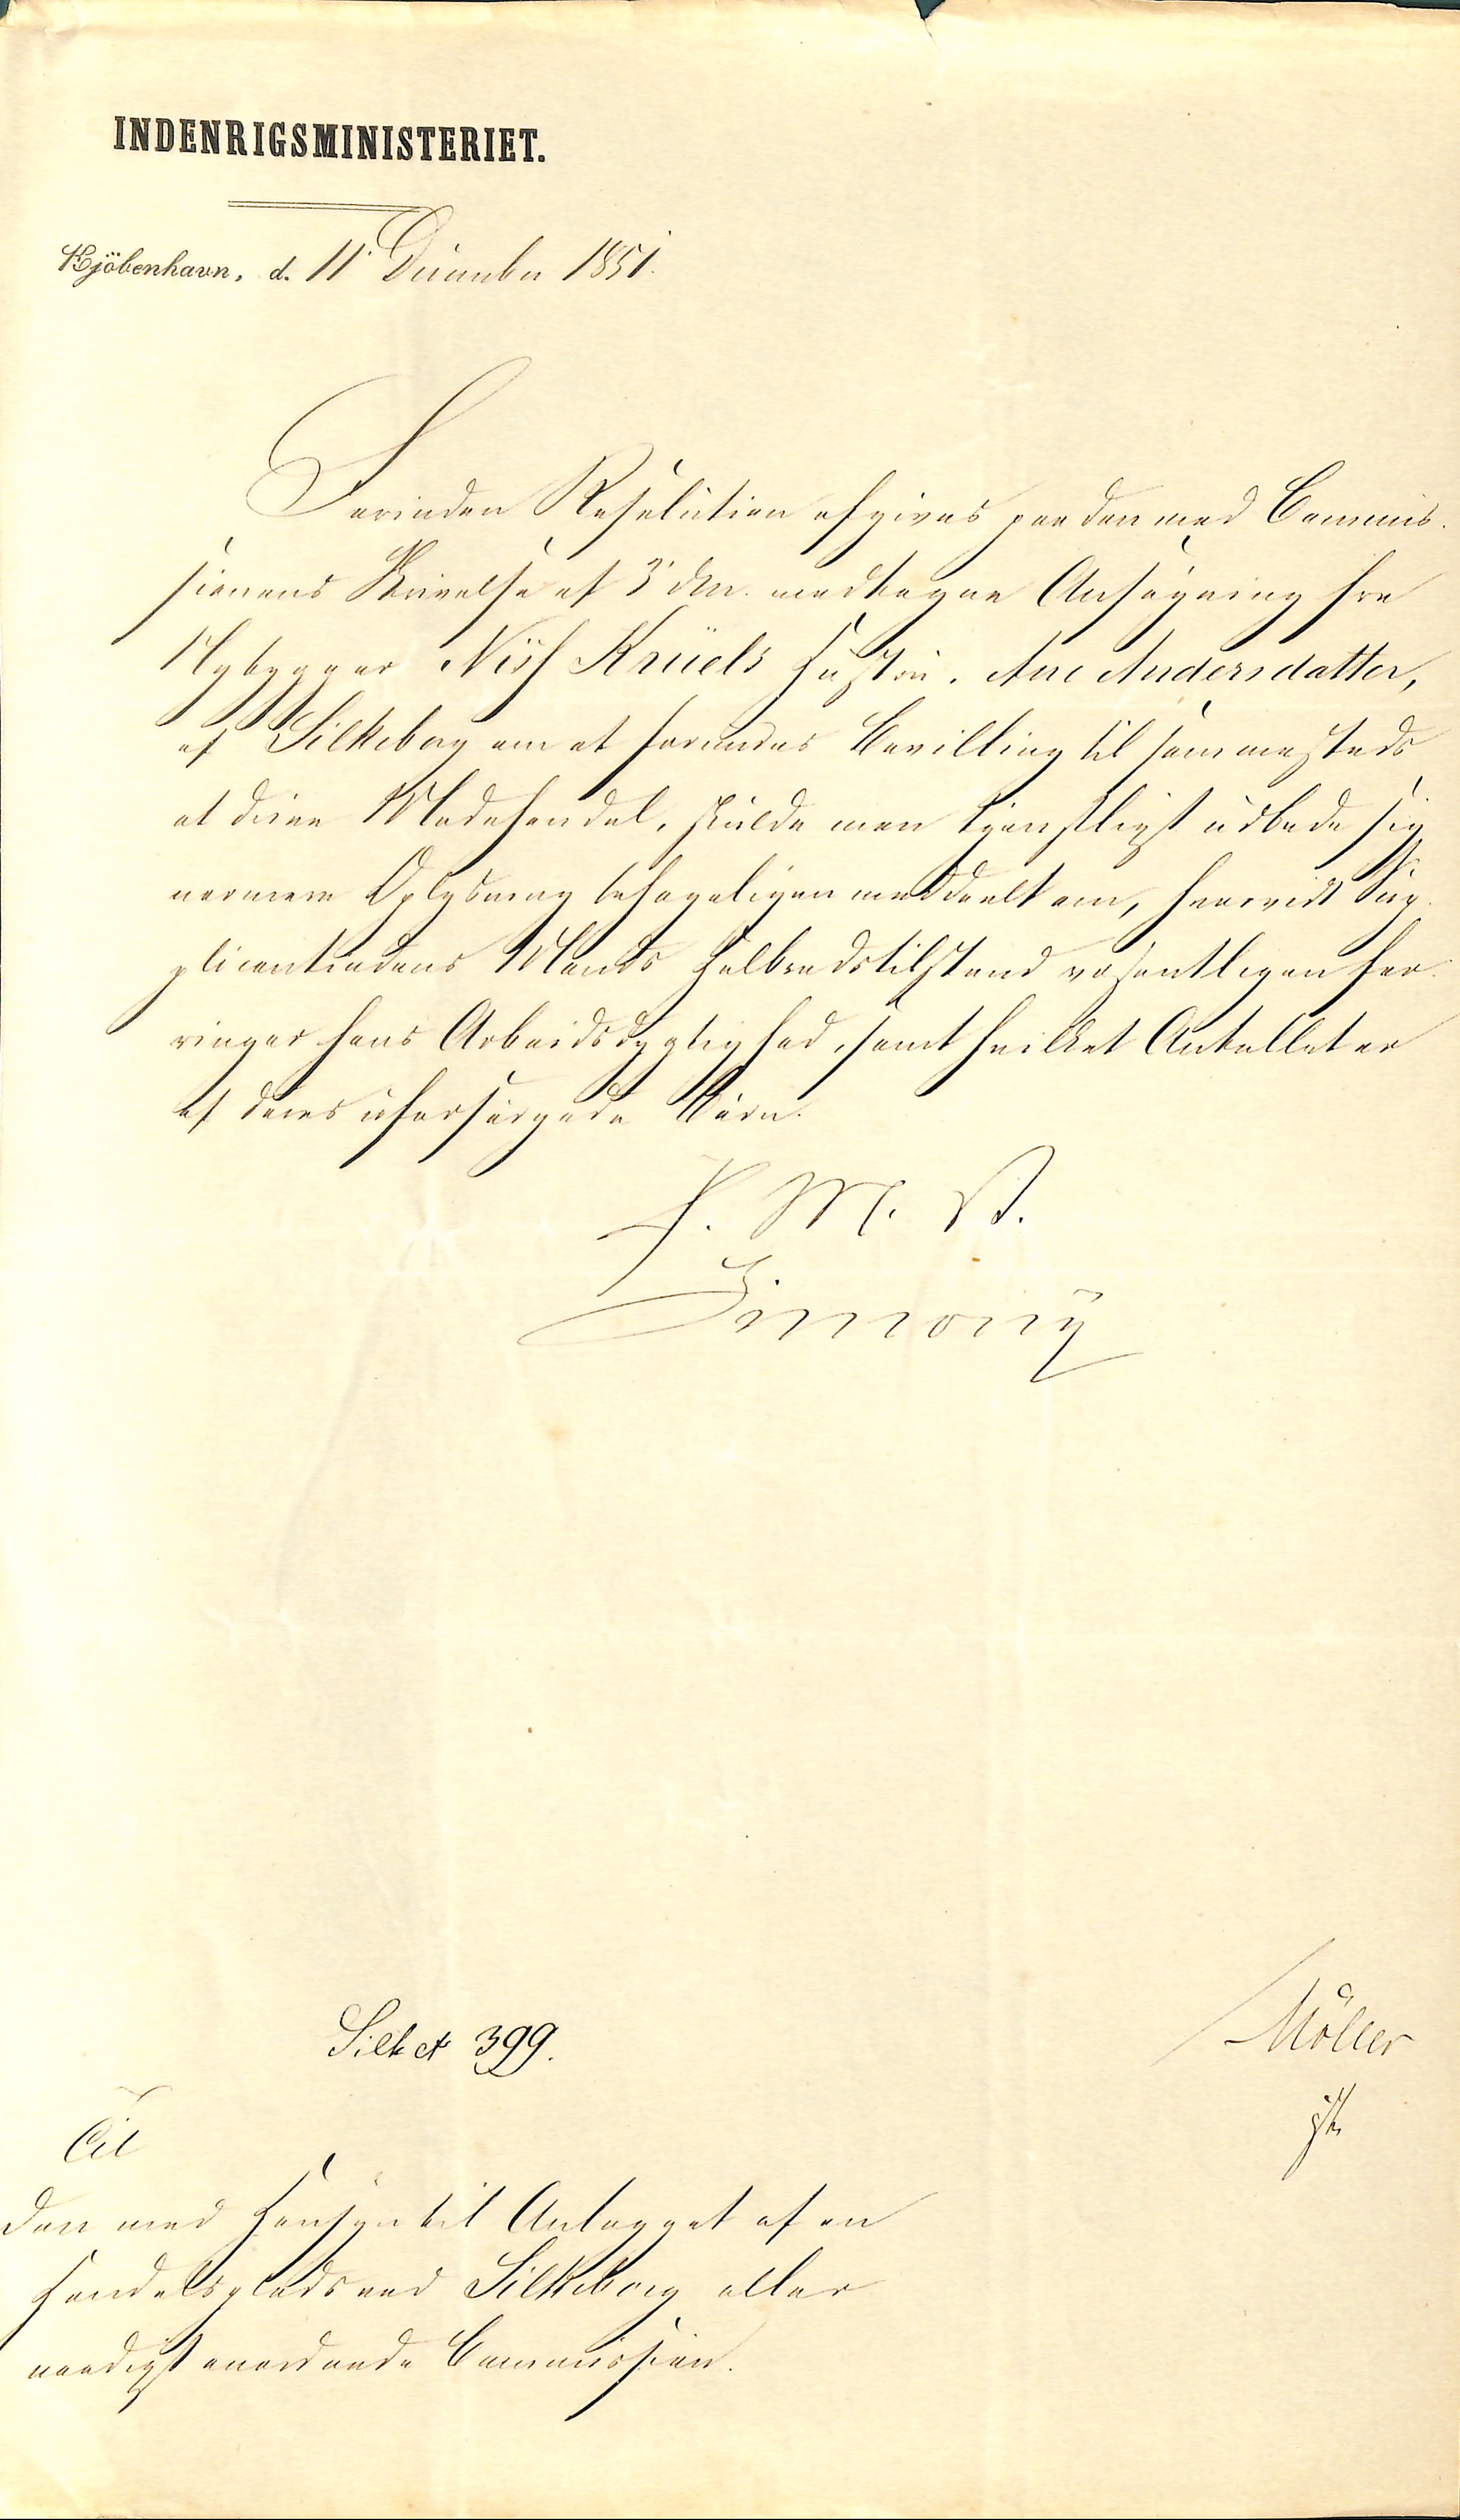 INDENRIGSMINISTERIET.
Kjöbenhavn, d. 11' December 1851.
Forinden Resolution afgives paa den med Commis-
sionens Skrivelse af 3' dM. modtagne Ansøgning fra
Nybygger Niss Krüels Hustru, Ane Andersdatter,
af Silkeborg om at forundes Bevilling til sammesteds
at drive Modehandel, skulde man tjenstligst udbede sig
nærmere Oplysning behageligen meddeelt om, hvorvidt Sup-
plicantindens Mands Helbredstilstand væsentligen for-
ringer hans Arbeidsdygtighed, samt hvilket Antallet er
af deres uforsørgede Børn.
F. M. V.
Simony
Silk 399.
Møller
Til
den med Hensyn til Anlægget af en
Handelsplads ved Silkeborg aller
naadigst anordnede Commission.